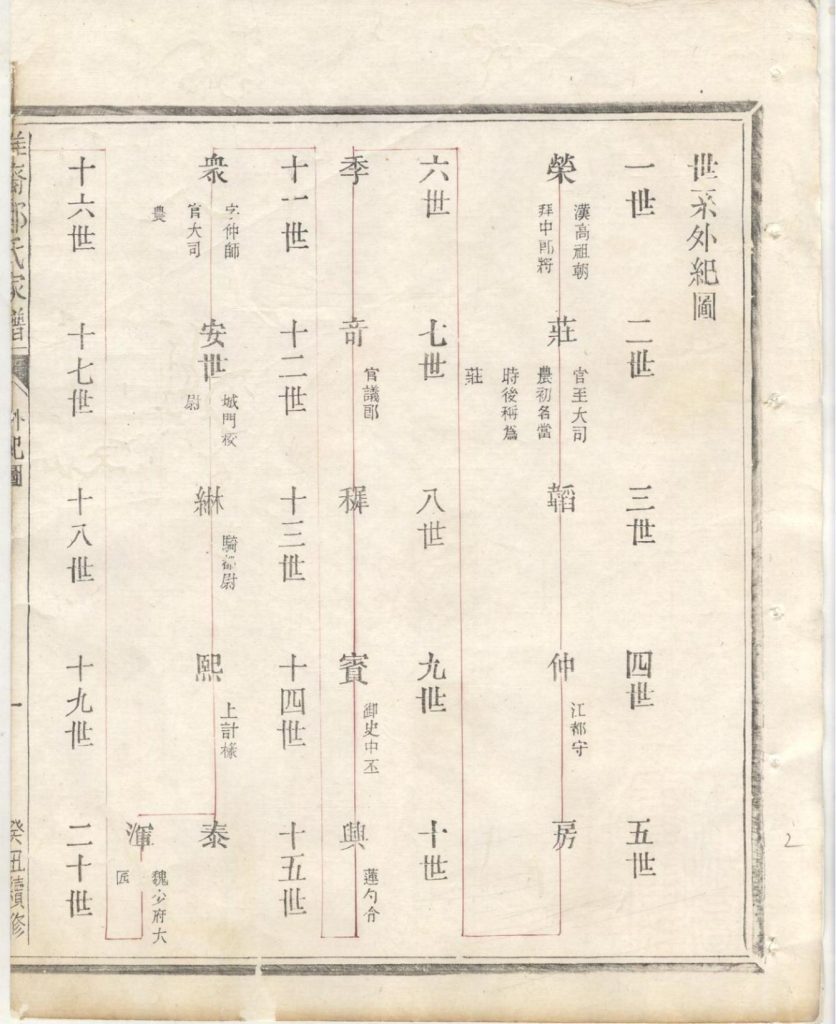 世系外紀圖
一世
二世
三世
四世
五世
榮
漢高祖朝
拜中郎將
莊
官至大司
農初名當
時後稱爲
莊
韜
仲
江都守
房
六世
七世
八世
九世
十世
季
奇
官議郎
穉
賓
御史中丕
興
蓮勺令
十一世
十二世
十三世
十四世
十五世
衆
字仲師
官大司
農
安世
城門校
尉
綝
騎都尉
熙
上計椽
泰
渾
魏少府大
匠
十六世
十七世
十八世
十九世
二十世
鄭氏家譜
外紀圖
一
癸丑續修
2